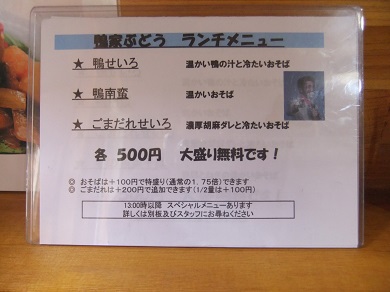 鴨家ぶどう ランチメニュー
★ 鴨せいろ 温かい鴨の汁と冷たいおそば
★ 鴨南蛮 温かいおそば
★ ごまだれせいろ 濃厚胡麻ダレと冷たいおそば
各 500円 大盛り無料です！
◎ おそばは＋100円で特盛り(通常の1.75倍)できます
◎ ごまだれは＋200円で追加できます(1/2量は＋100円)
13:00時以降 スペシャルメニューあります
詳しくは別板及びスタッフにお尋ねください